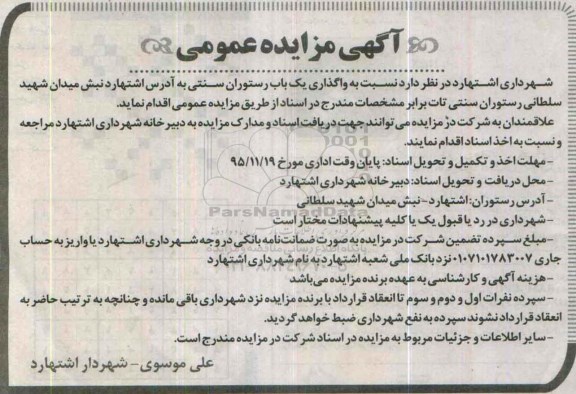 آگهی مزایده عمومی
شهرداری اشتهارد در نظر دارد نسبت به واگذاری یک باب رستوران سنتی به آدرس اشتهارد نبش میدان شهید
سلطانی رستوران سنتی تات برابر مشخصات مندرج در اسناد از طریق مزایده عمومی اقدام نماید.
علاقمندان به شرکت در مزایده می توانند جهت دریافت اسناد و مدارک مزایده به دبیرخانه شهرداری اشتهارد مراجعه
و نسبت به اخذ اسناد اقدام نمایند.
-مهلت اخذ و تکمیل و تحویل اسناد: پایان وقت اداری مورخ ۹۵/۱۱/۱۹
-محل دریافت و تحویل اسناد: دبیرخانه شهرداری اشتهارد
-آدرس رستوران: اشتهارد-نبش میدان شهید سلطانی
-شهرداری در رد یا قبول یک یا کلیه پیشنهادات مختار است
ParsNamadData
-مبلغ سپرده تضمین شرکت در مزایده به صورت ضمانت نامه بانکی در وجه شهرداری اشتهارد یا واریز به حساب
جاری ۰۱۰۷۱۰۱۷۸۳۰۰۷ نزد بانک ملی شعبه اشتهارد به نام شهرداری اشتهارد
-هزینه آگهی و کارشناسی به عهده برنده مزایده می باشد
-سپرده نفرات اول و دوم و سوم تا انعقاد قرارداد با برنده مزایده نزد شهرداری باقی مانده و چنانچه به ترتیب حاضر به
انعقاد قرارداد نشوند سپرده به نفع شهرداری ضبط خواهد گردید.
-سایر اطلاعات و جزئیات مربوط به مزایده در اسناد شرکت در مزایده مندرج است.
علی موسوی-شهردار اشتهارد